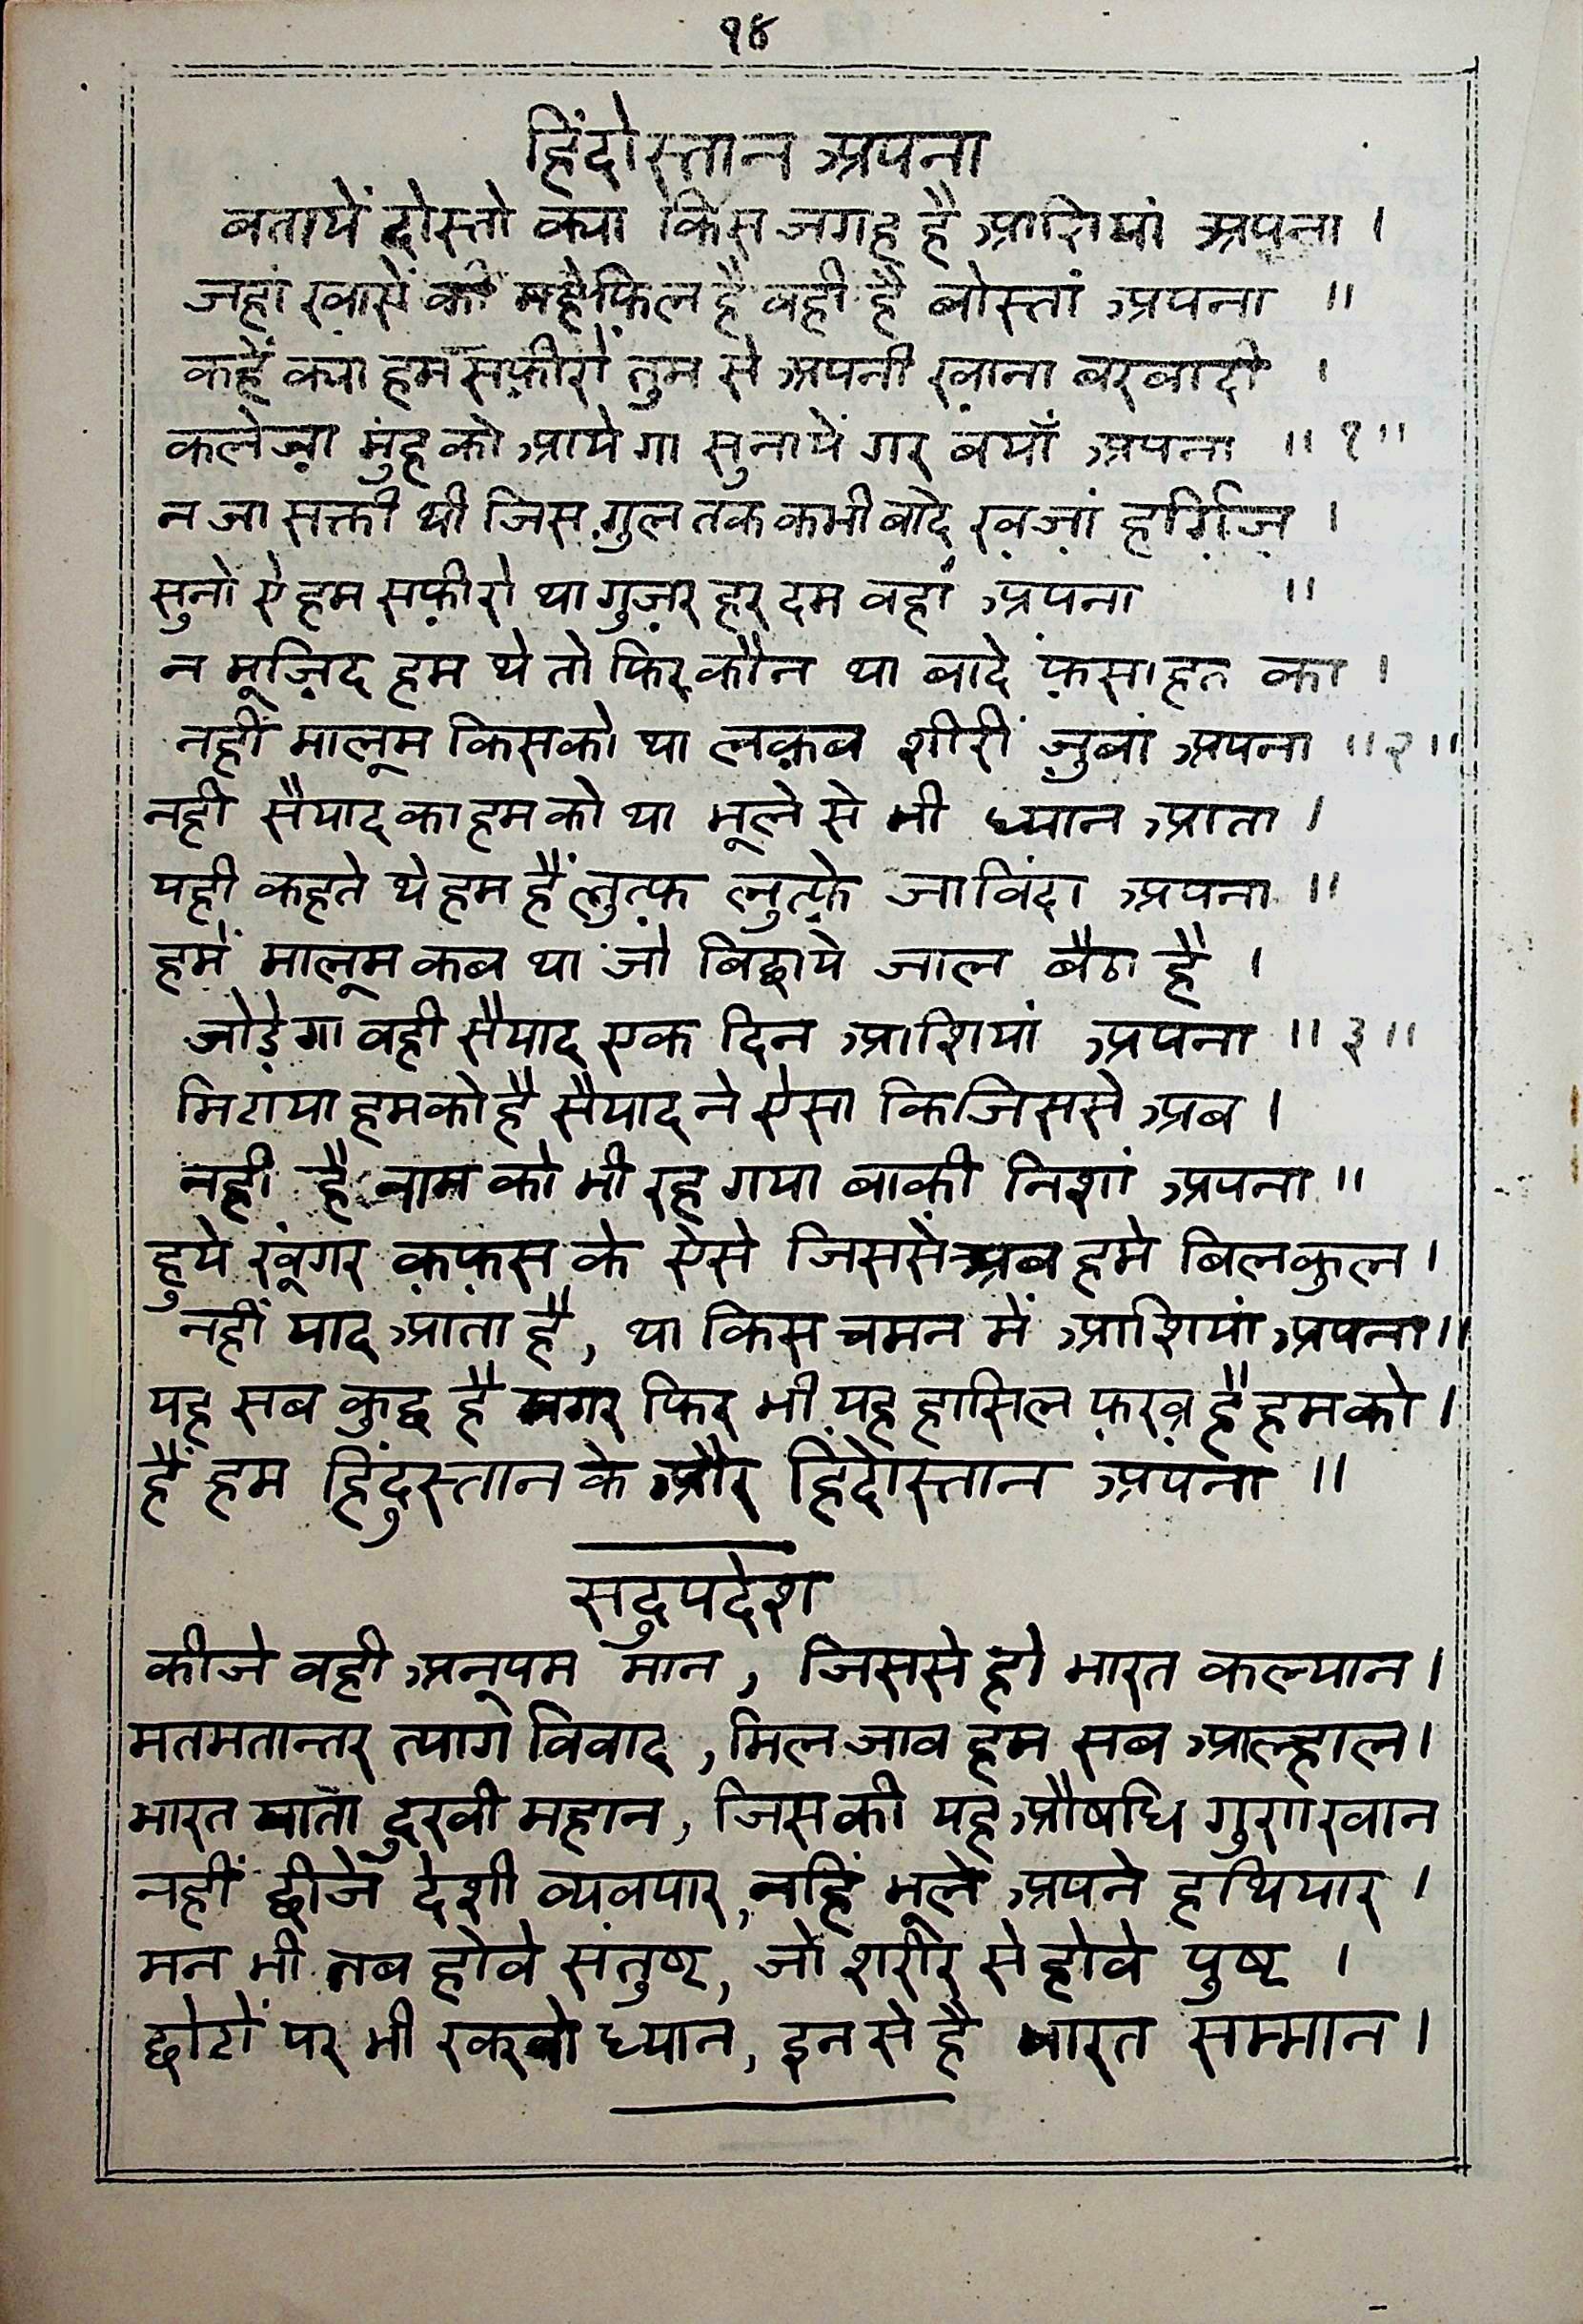 १४
हिंदोस्तान अपना
बतायें दोस्तो क्या किस जगह है आशियां अपना ।
जहां ख़ासों की महेफिल है वही है बोस्तां अपना ॥
कहें क्या हम सफ़ीरों तुम से अपनी ख़ाना बरबादी ।
कलेज़ा मुंह को आयेगा सुनायें गर बयाँ अपना ॥ १ ॥
न जा सक्ती थी जिस गुल तक कभी बादे ख़ज़ां हर्गिज़ ।
सुनो ऐ हम सफ़ीरो था गुज़र हर दम वहां अपना ॥
न मूज़िद हम थे तो फिर कौन था बादे फ़साहत का ।
नहीं मालूम किसको था लक़ब शीरीं ज़ुबां अपना ॥ २ ॥
नही सैयाद का हम को था भूले से भी ध्यान आता ।
यही कहते थे हम हैं लुत्फ़ लुत्फ़े जाविंदा अपना ॥
हमें मालूम कब था जो बिछाये जाल बैठा है ।
जोड़ेगा वही सैयाद एक दिन आशियां अपना ॥ ३ ॥
मिटाया हमको है सैयाद ने ऐसा कि जिससे अब ।
नही है नाम को भी रह गया बाक़ी निशां अपना ॥
हुये ख़ूंगर क़फ़स के ऐसे जिससे अब हमे बिलकुल ।
नहीं याद आता है, था किस चमन में आशियां अपना ॥
यह सब कुछ है मगर फिर भी यह हासिल फ़ख़्र है हमको ।
हैं हम हिंदुस्तान के और हिंदोस्तान अपना ॥
सदुपदेश
कीजे वही अनूपम मान, जिससे हो भारत कल्यान ।
मतमतान्तर त्यागे विवाद, मिल जाव हम सब आल्हाल ।
भारत माता दुखी महान, जिसकी यह औषधि गुणखान
नहीं छीजे देशी व्यवपार, नहिं भूले अपने हथियार ।
मन भी तब होवे संतुष्ट, जो शरीर से होवे पुष्ट ।
छोटों पर भी रक्खो ध्यान, इन से है भारत सम्मान ।